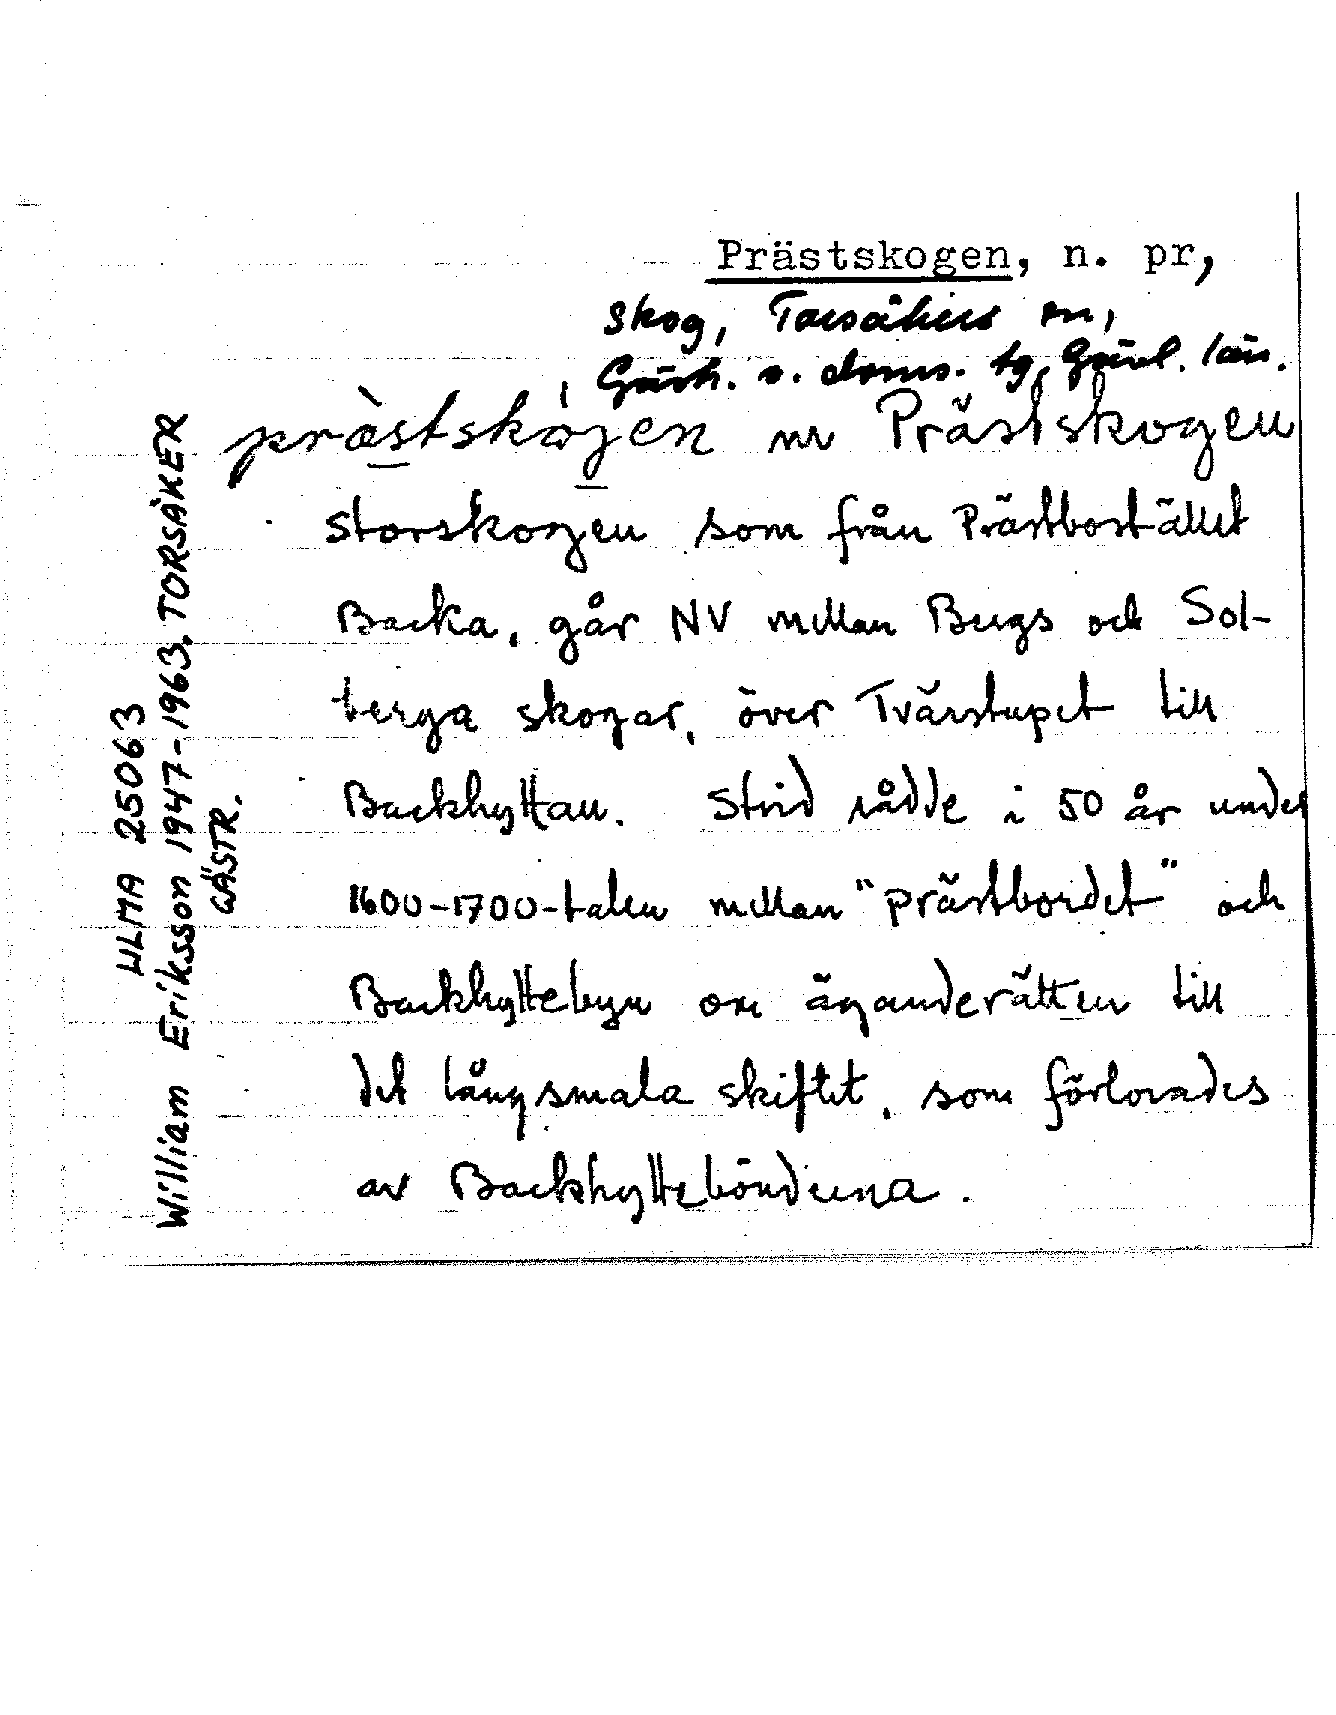 Prästskogen, n. pr,
skog, Torsåkers sn,
Gästr. v. doms. tg, Gävl. län.
prästskogen nr Prästskogen
storskogen som från Prästbostället
Backa, går NV mellan Bugs och Sol-
berga skogar, över Tvärstupet till
Backhyttan. Strid rådde i 50 år under
1600-1700-talen mellan "prästbordet" och
Backhyttebyn om äganderätten till
det långsmala skiftet, som förlorades
av Backhyttebönderna.
ULMA 25063
William Eriksson 1947-1963. TORSÅKER
GÄSTR.